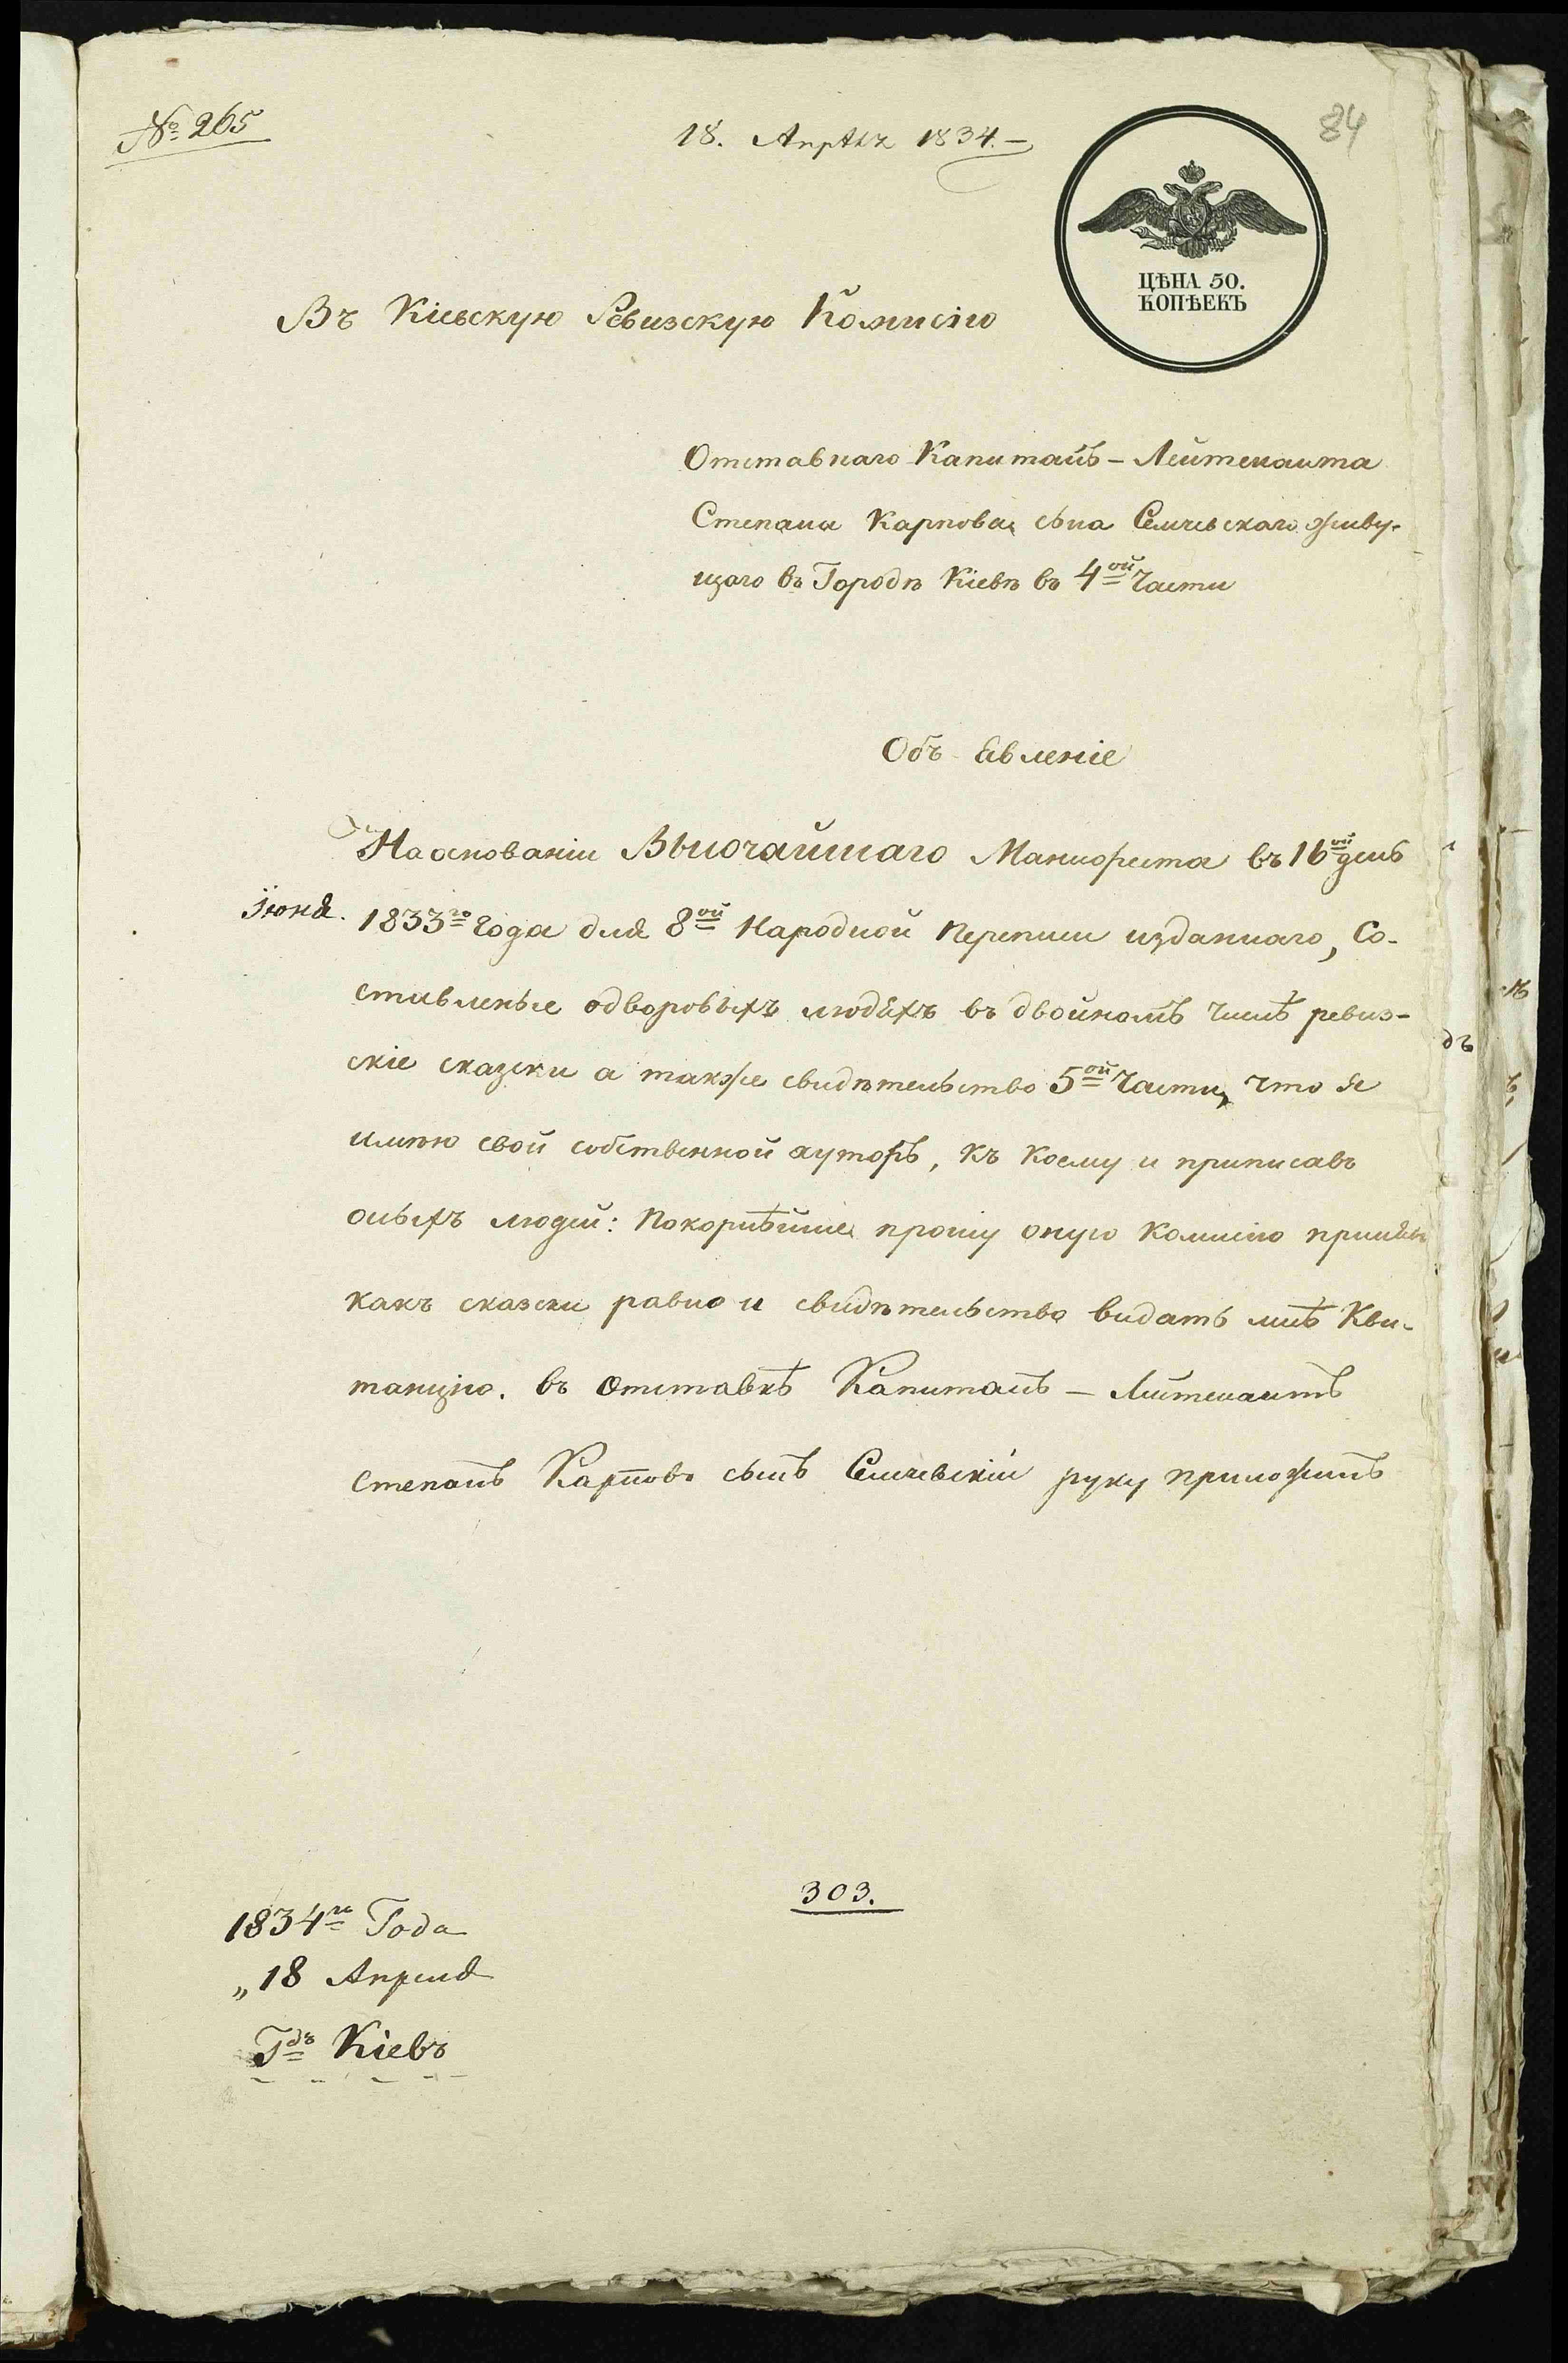 № 265
18. Апрѣля 1834.—
84
ЦѢНА 50.
КОПѢЕКЪ
Въ Кіевскую Ревизскую Комисію
Отставнаго Капитанъ – Лейтенанта
Степана Карпова сына Семчевскаго живу-
щаго въ Городѣ Кіевѣ въ 4ой Части
Объ Евленіе
На основаніи Высочайшаго Манифеста въ 16ый день
Іюня. 1833го Года для 8ой Народной Переписи изданнаго, Со-
ставленые одворовыхъ людяхъ въ двойномъ числѣ ревиз-
скіе сказски а также свидѣтельство 5ой Части, что я
имѣю свой собственной хуторъ, къ коему и приписавъ
оныхъ людей: Покорнѣйше прошу оную Комисію принять
какъ сказски равно и свидѣтельство видать мнѣ Кви-
танцію. въ Отставкѣ Капитанъ – Лейтенантъ
Степанъ Карповъ сынъ Семчевскій руку приложилъ
303.
1834го Года
„18 Апреля
Гдъ Кіевъ